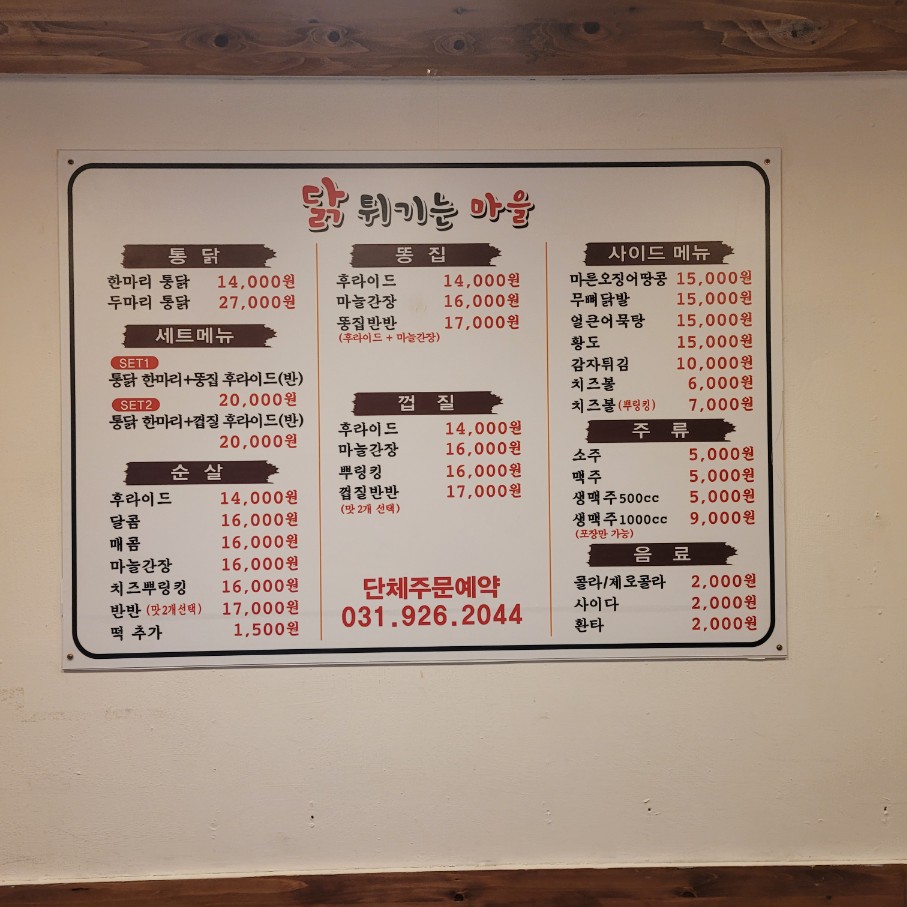 닭 튀기는 마을
통 닭
한마리 통닭 14,000원
두마리 통닭 27,000원
세트메뉴
SET1
통닭 한마리+똥집 후라이드(반)
20,000원
SET2
통닭 한마리+껍질 후라이드(반)
20,000원
순 살
후라이드 14,000원
달콤 16,000원
매콤 16,000원
마늘간장 16,000원
치즈뿌링킹 16,000원
반반 (맛2개선택) 17,000원
떡 추가 1,500원
똥 집
후라이드 14,000원
마늘간장 16,000원
똥집반반 17,000원
(후라이드 + 마늘간장)
껍 질
후라이드 14,000원
마늘간장 16,000원
뿌링킹 16,000원
껍질반반 17,000원
(맛 2개 선택)
단체주문예약
031.926.2044
사이드 메뉴
마른오징어땅콩 15,000원
무뼈닭발 15,000원
얼큰어묵탕 15,000원
황도 15,000원
감자튀김 10,000원
치즈볼 6,000원
치즈볼 (뿌링킹) 7,000원
주 류
소주 5,000원
맥주 5,000원
생맥주500cc 5,000원
생맥주1000cc 9,000원
(포장만 가능)
음 료
콜라/제로콜라 2,000원
사이다 2,000원
환타 2,000원